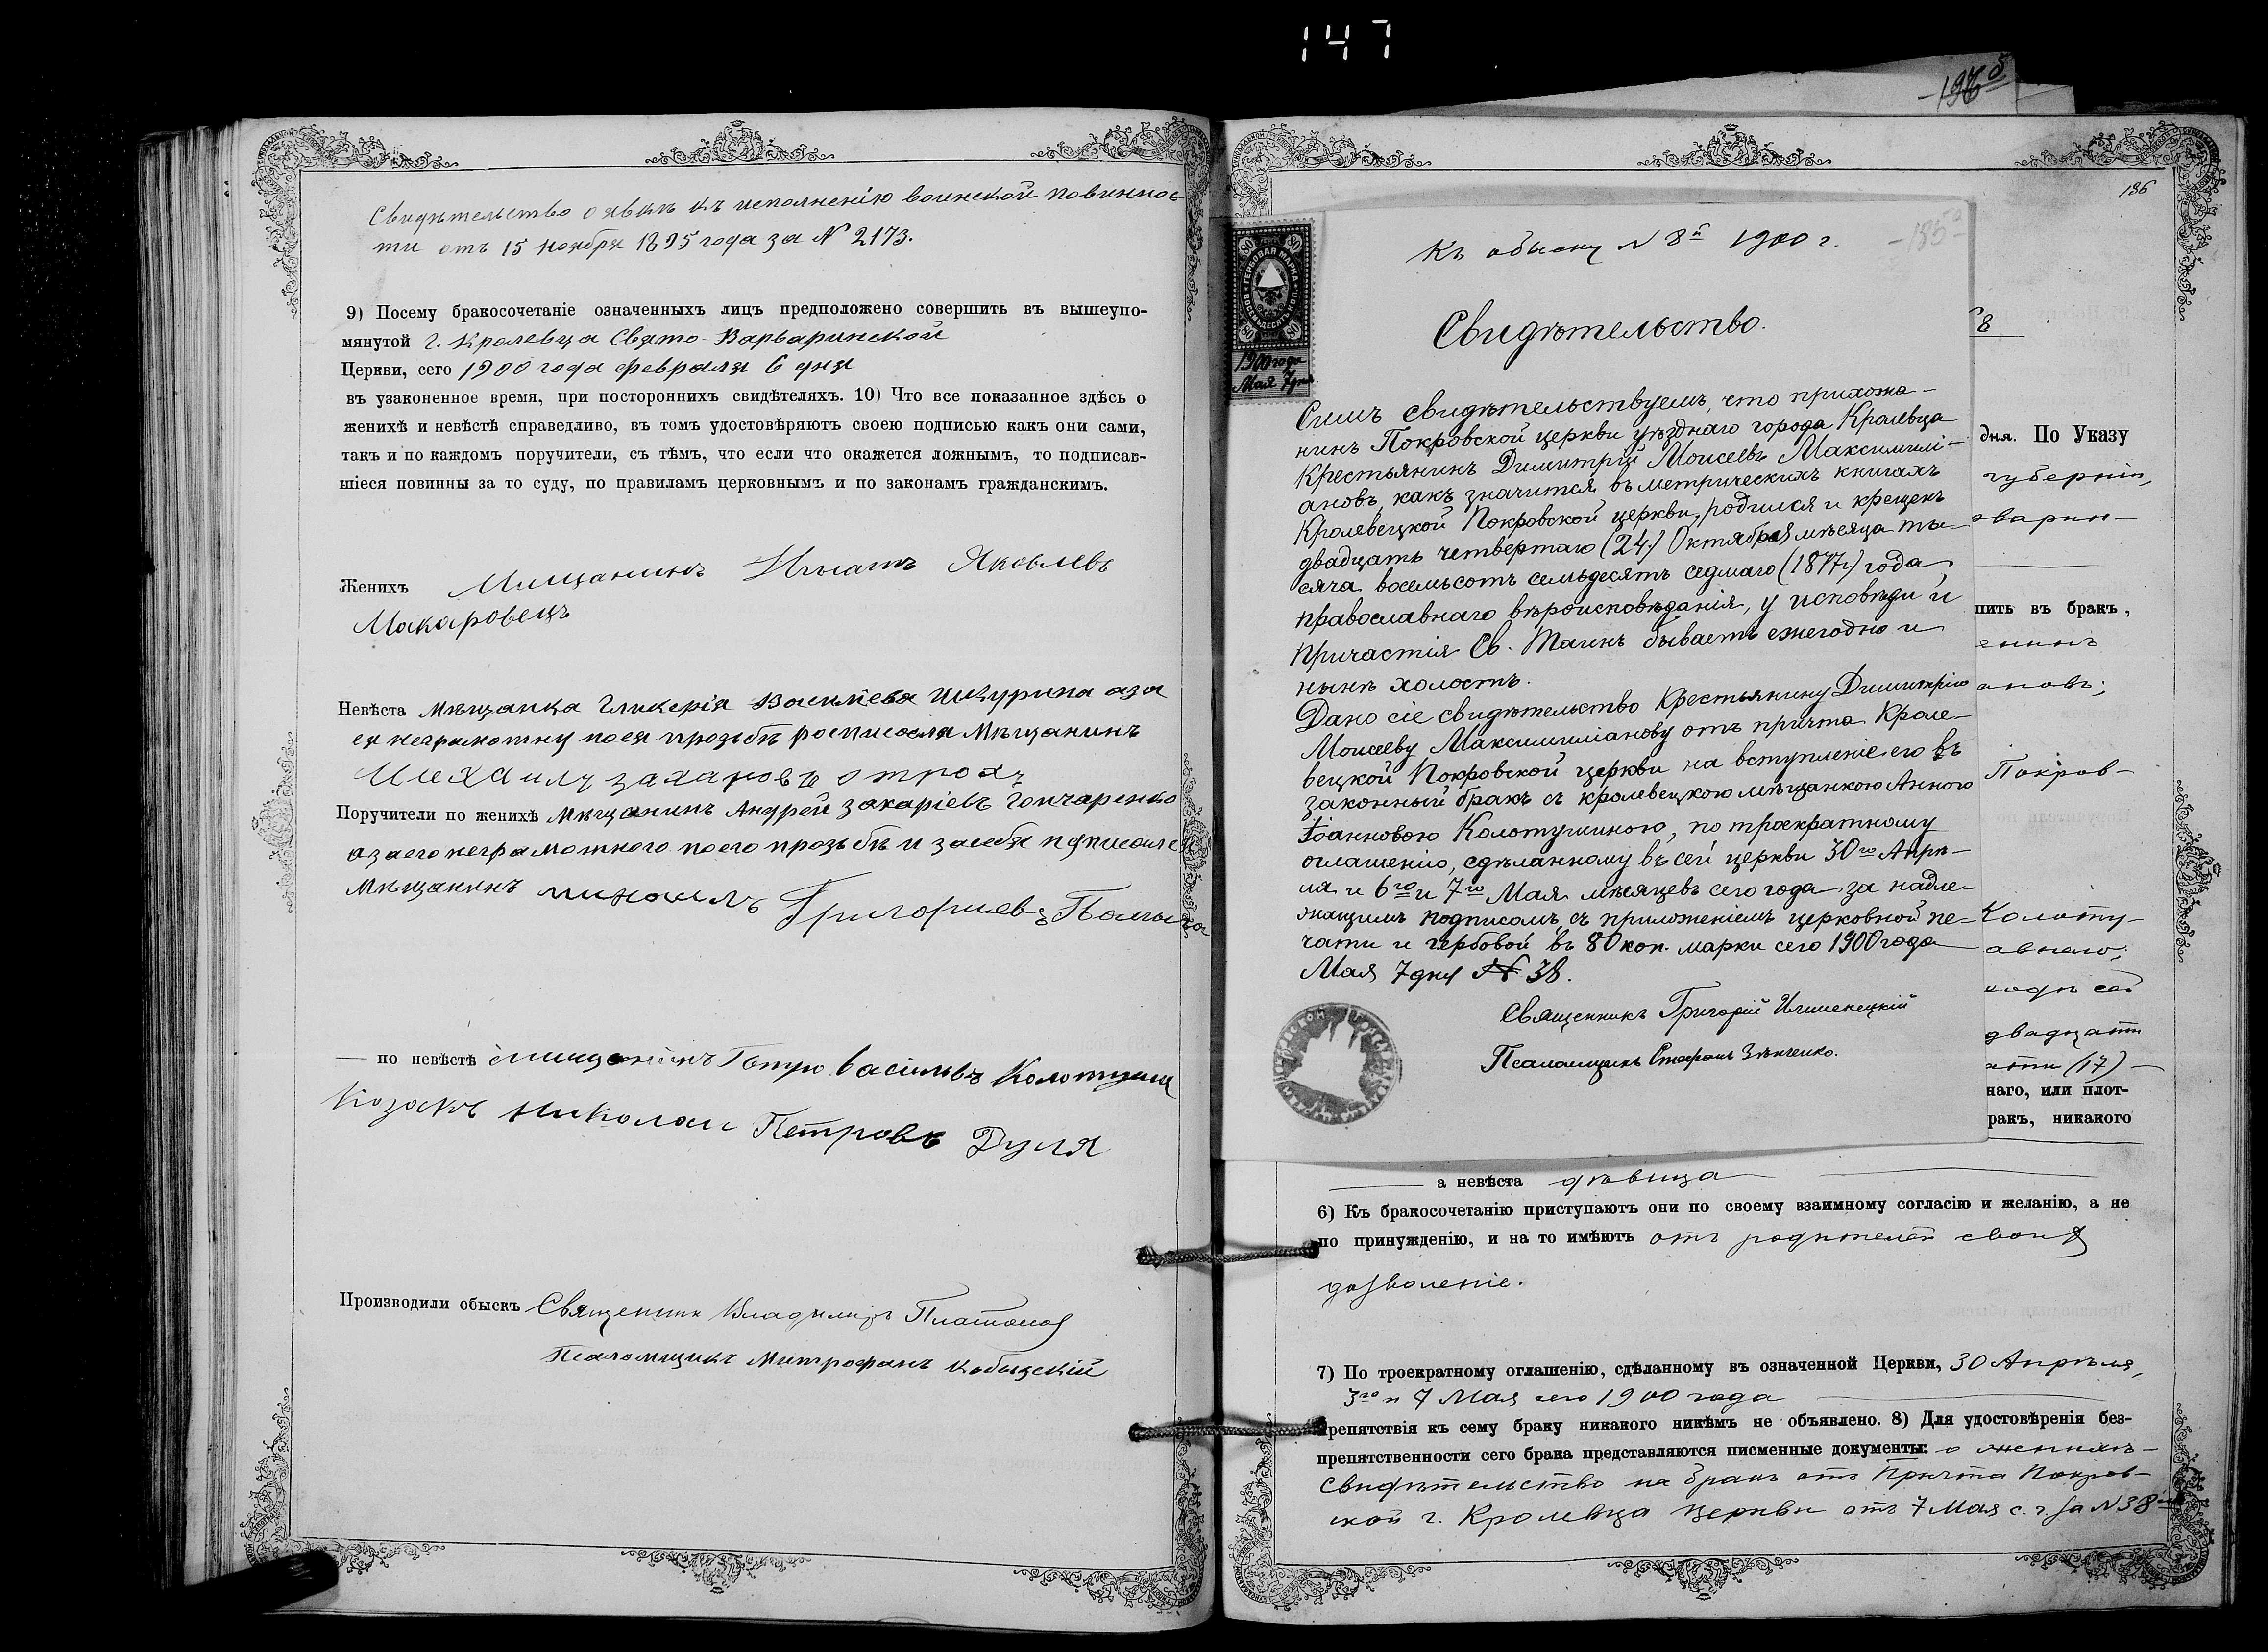 147
196 б
Свидѣтельство о явкѣ къ исполненію воинской повиннос-
ти отъ 15 ноября 1895 года за № 2173.
9) Посему бракосочетаніе означенныхъ лицъ предположено совершить въ вышеупо-
мянутой г. Кролевца Свято-Варваринской
Церкви, сего 1900 года февраля 6 дня
въ узаконенное время, при постороннихъ свидѣтеляхъ. 10) Что все показанное здѣсь о
женихѣ и невѣстѣ справедливо, въ томъ удостовѣряютъ своею подписью какъ они сами,
такъ и по каждомъ поручители, съ тѣмъ, что если что окажется ложнымъ, то подписав-
шіеся повинны за то суду, по правиламъ церковнымъ и по законамъ гражданскимъ.
Женихъ Мищанинъ Игнатъ Яковлевъ
Макаровецъ
Невѣста Мѣщанка Гликерія Васильева Шкурина а за
ея неграмотну по ея прозьбѣ росписался Мѣщанинъ
Поручители по женихѣ Мѣщанинъ Андрей Захаріевъ Гончаренко
а за его неграмотного по его прозьбѣ и за себя подписался
Мѣщанинъ Михаилъ Григориевъ
— по невѣстѣ Мищанинъ Петро Васильвъ Колотуша
Козакъ Николаи Петровъ Дуля
Производили обыскъ Священник Владимиръ Платонов
Псаломщикъ Митрофанъ Кобыцскій
186
Къ обыску № 8й 1900 г.
-185а-
80 80
ГЕРБОВАЯ МАРКА
ВОСЕМЬДЕСЯТЪ КОП.
80 80
1900 года
Мая 7 дня
Свидѣтельство.
Симъ свидѣтельствуемъ, что прихожа-
нинъ Покровской церкви уѣзднаго города Кролевца
Крестьянинъ Димитрій Моисеевъ Максимилі-
ановъ, какъ значится въ метрическихъ книгахъ
Кролевецкой Покровской церкви, родился и крещенъ
двадцать четвертаго (24.) Октября мѣсяца ты-
сяча восемьсотъ семьдесятъ седмаго (1877г.) года,
православнаго вѣроисповѣданія, у исповѣди и
причастія Св. Таинъ бываетъ ежегодно и
нынѣ холостъ.
Дано сіе свидѣтельство Крестьянину Димитрію
Моисееву Максимиліанову отъ причта Кроле-
вецкой Покровской церкви на вступленіе его въ
законный бракъ съ кролевецкою мѣщанкою Анною
Іоанновою Колотушиною, по троекратному
оглашенію, сдѣланному въ сей церкви 30го Апрѣ-
ля и 6го и 7го Мая мѣсяцевъ сего года за надле-
жащимъ подписомъ, съ приложеніемъ церковной пе-
чати и гербовой въ 80 коп. марки сего 1900 года
Мая 7 дня № 38.
Священникъ Григорій Иллименецкій
Псаломщикъ Стефанъ Зѣнченко.
8
дня. По Указу
губерніи,
варин-
пить въ бракъ,
енинъ
ановъ;
Покров-
Колоту-
авнаго;
двадцати
(17)
наго, или плот-
ракъ, никакого
а невѣста дѣвица
6) Къ бракосочетанію приступаютъ они по своему взаимному согласію и желанію, а не
по принужденію, и на то имѣютъ отъ родителей своихъ
дозволеніе.
7) По троекратному оглашенію, сдѣланному въ означенной Церкви, 30 Апрѣля,
3го и 7 Мая сего 1900 года
препятствія къ сему браку никакого никѣмъ не объявлено. 8) Для удостовѣренія без-
препятственности сего брака представляются писменные документы: о женихѣ-
свидѣтельство на бракъ отъ Причта Покров-
ской г. Кролевца Церкви отъ 7 Мая с. г. за № 38